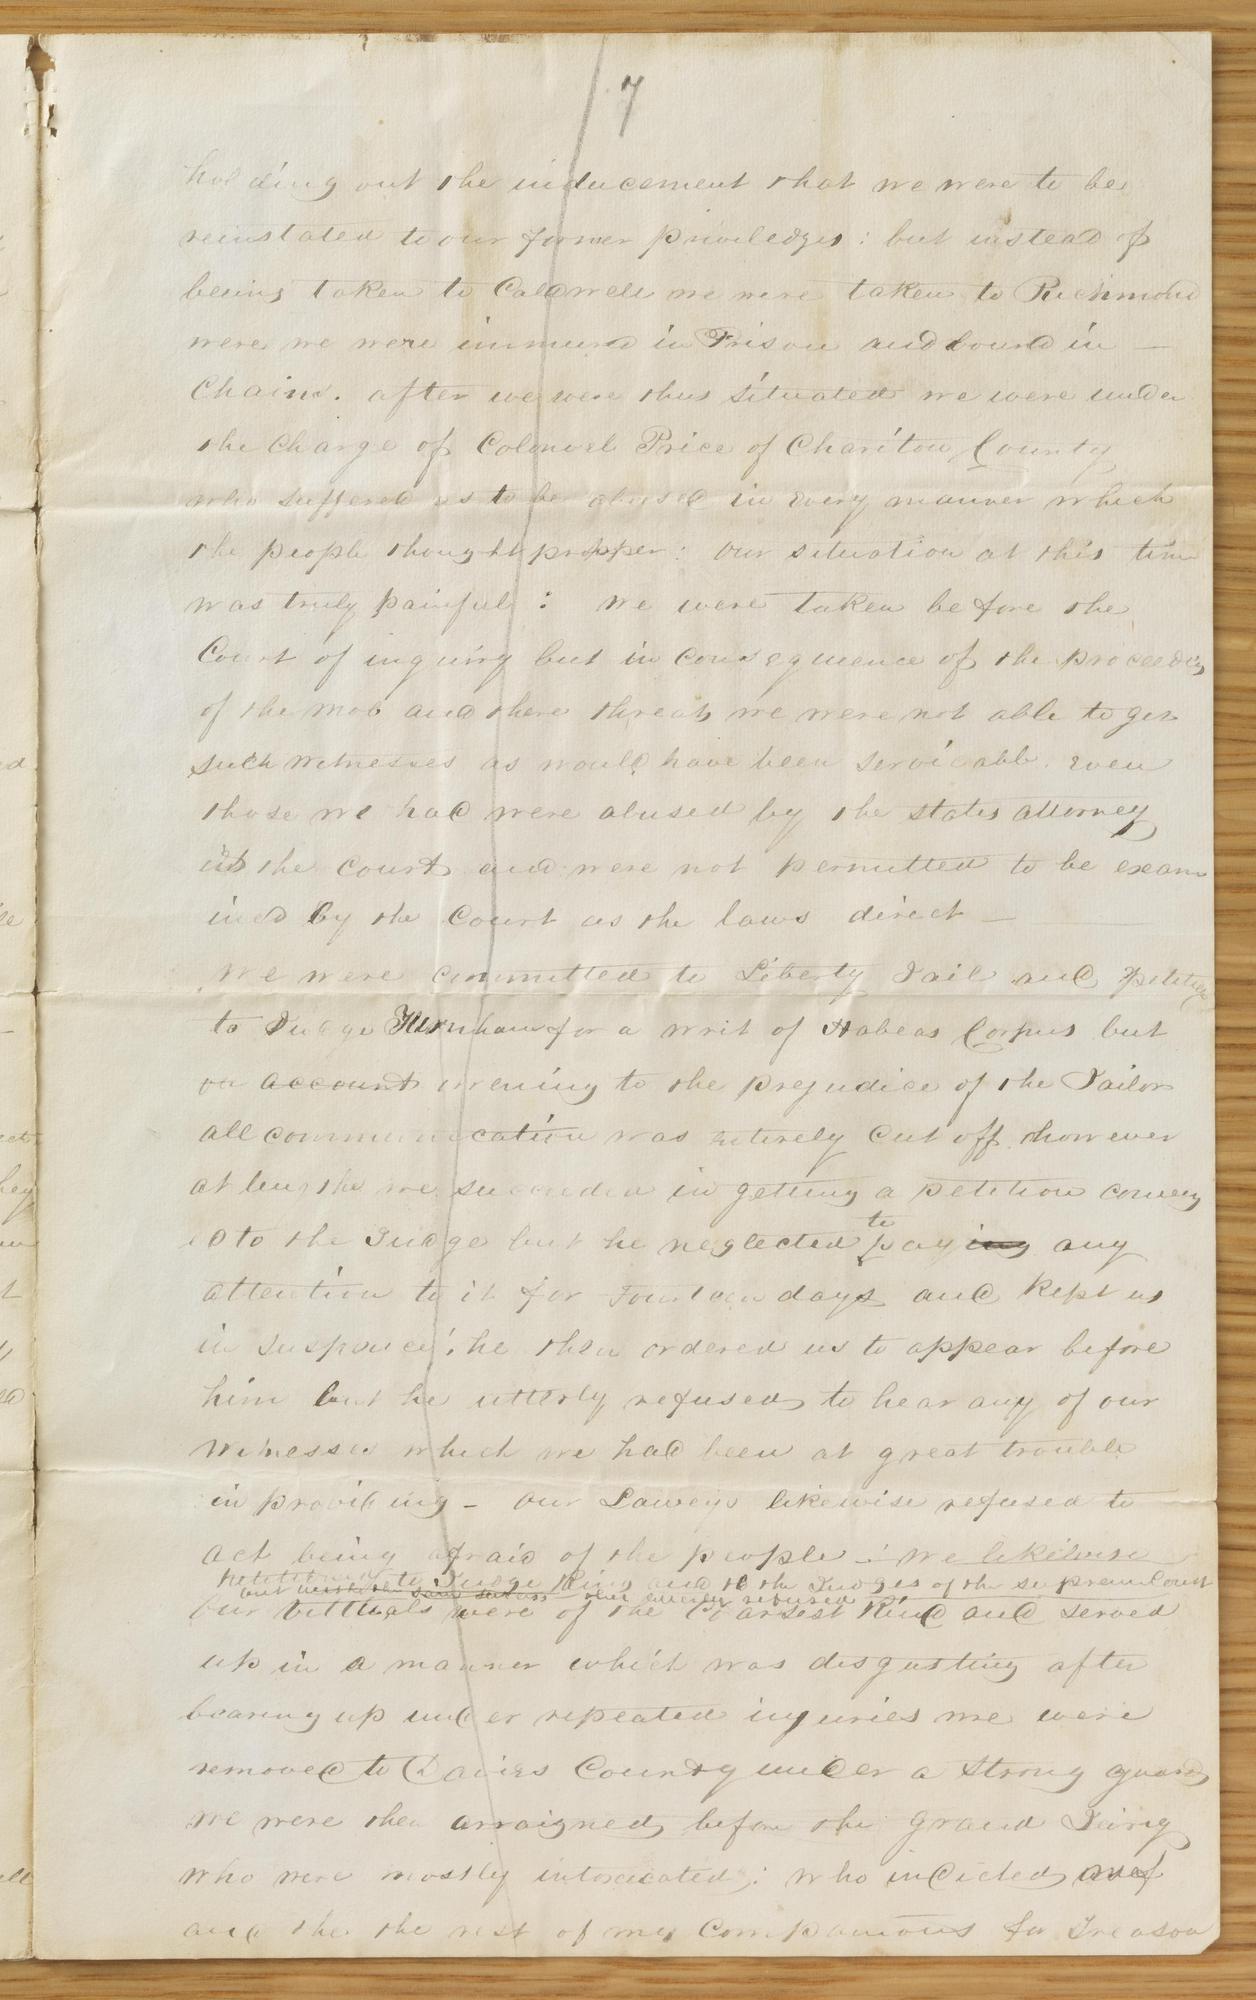 7
holding out the inducement that we were to be
reinstated to our former priviledges: but instead of
being taken to Caldwell we were taken to Richmond
were we were immured in Prison and bound in —
Chains. after we were thus situated we were under
the Charge of Colonel Price of Chariton County
who suffered us to be abused in every manner which
the people thought propper: our situation at this time
was truly painful: we were taken before the
Court of inquiry but in consequence of the proceedings
of the mob and there threats we were not able to get
such witnesses as would have been servicable. even
those we had were abused by the states attorney
the court and were not permitted to be exam
ined by the Court as the laws direct —
We were committed to Liberty Jail and petition
to Judge for a writ of Habeas Corpus but
on account owening to the prejudice of the Jailor
all communication was entirely cut off. however
at length we succeeded in getting a petition convey
ed to the Judge but he neglected to paying any
attention to it for Fourteen days and kept us
in suspence: he then ordered us to appear before
him but he utterly refused to hear any of our
witnesses which we had been at great trouble
in providing — our Lawyers likewise refused to
act being afraid of the people —: we likewise
petitioned to Judge King and to the Judges of the supreme Court
but with the same they utterly refused
Our vittuals were of the coarsest kind and served
up in a manner which was disgusting after
bearing up under repeated injuries we were
removed to Davies County under a strong guard
we were then arraigned before the grand Jury
who were mostly intoxicated: who indicted me
and the the rest of my Companions for Treason